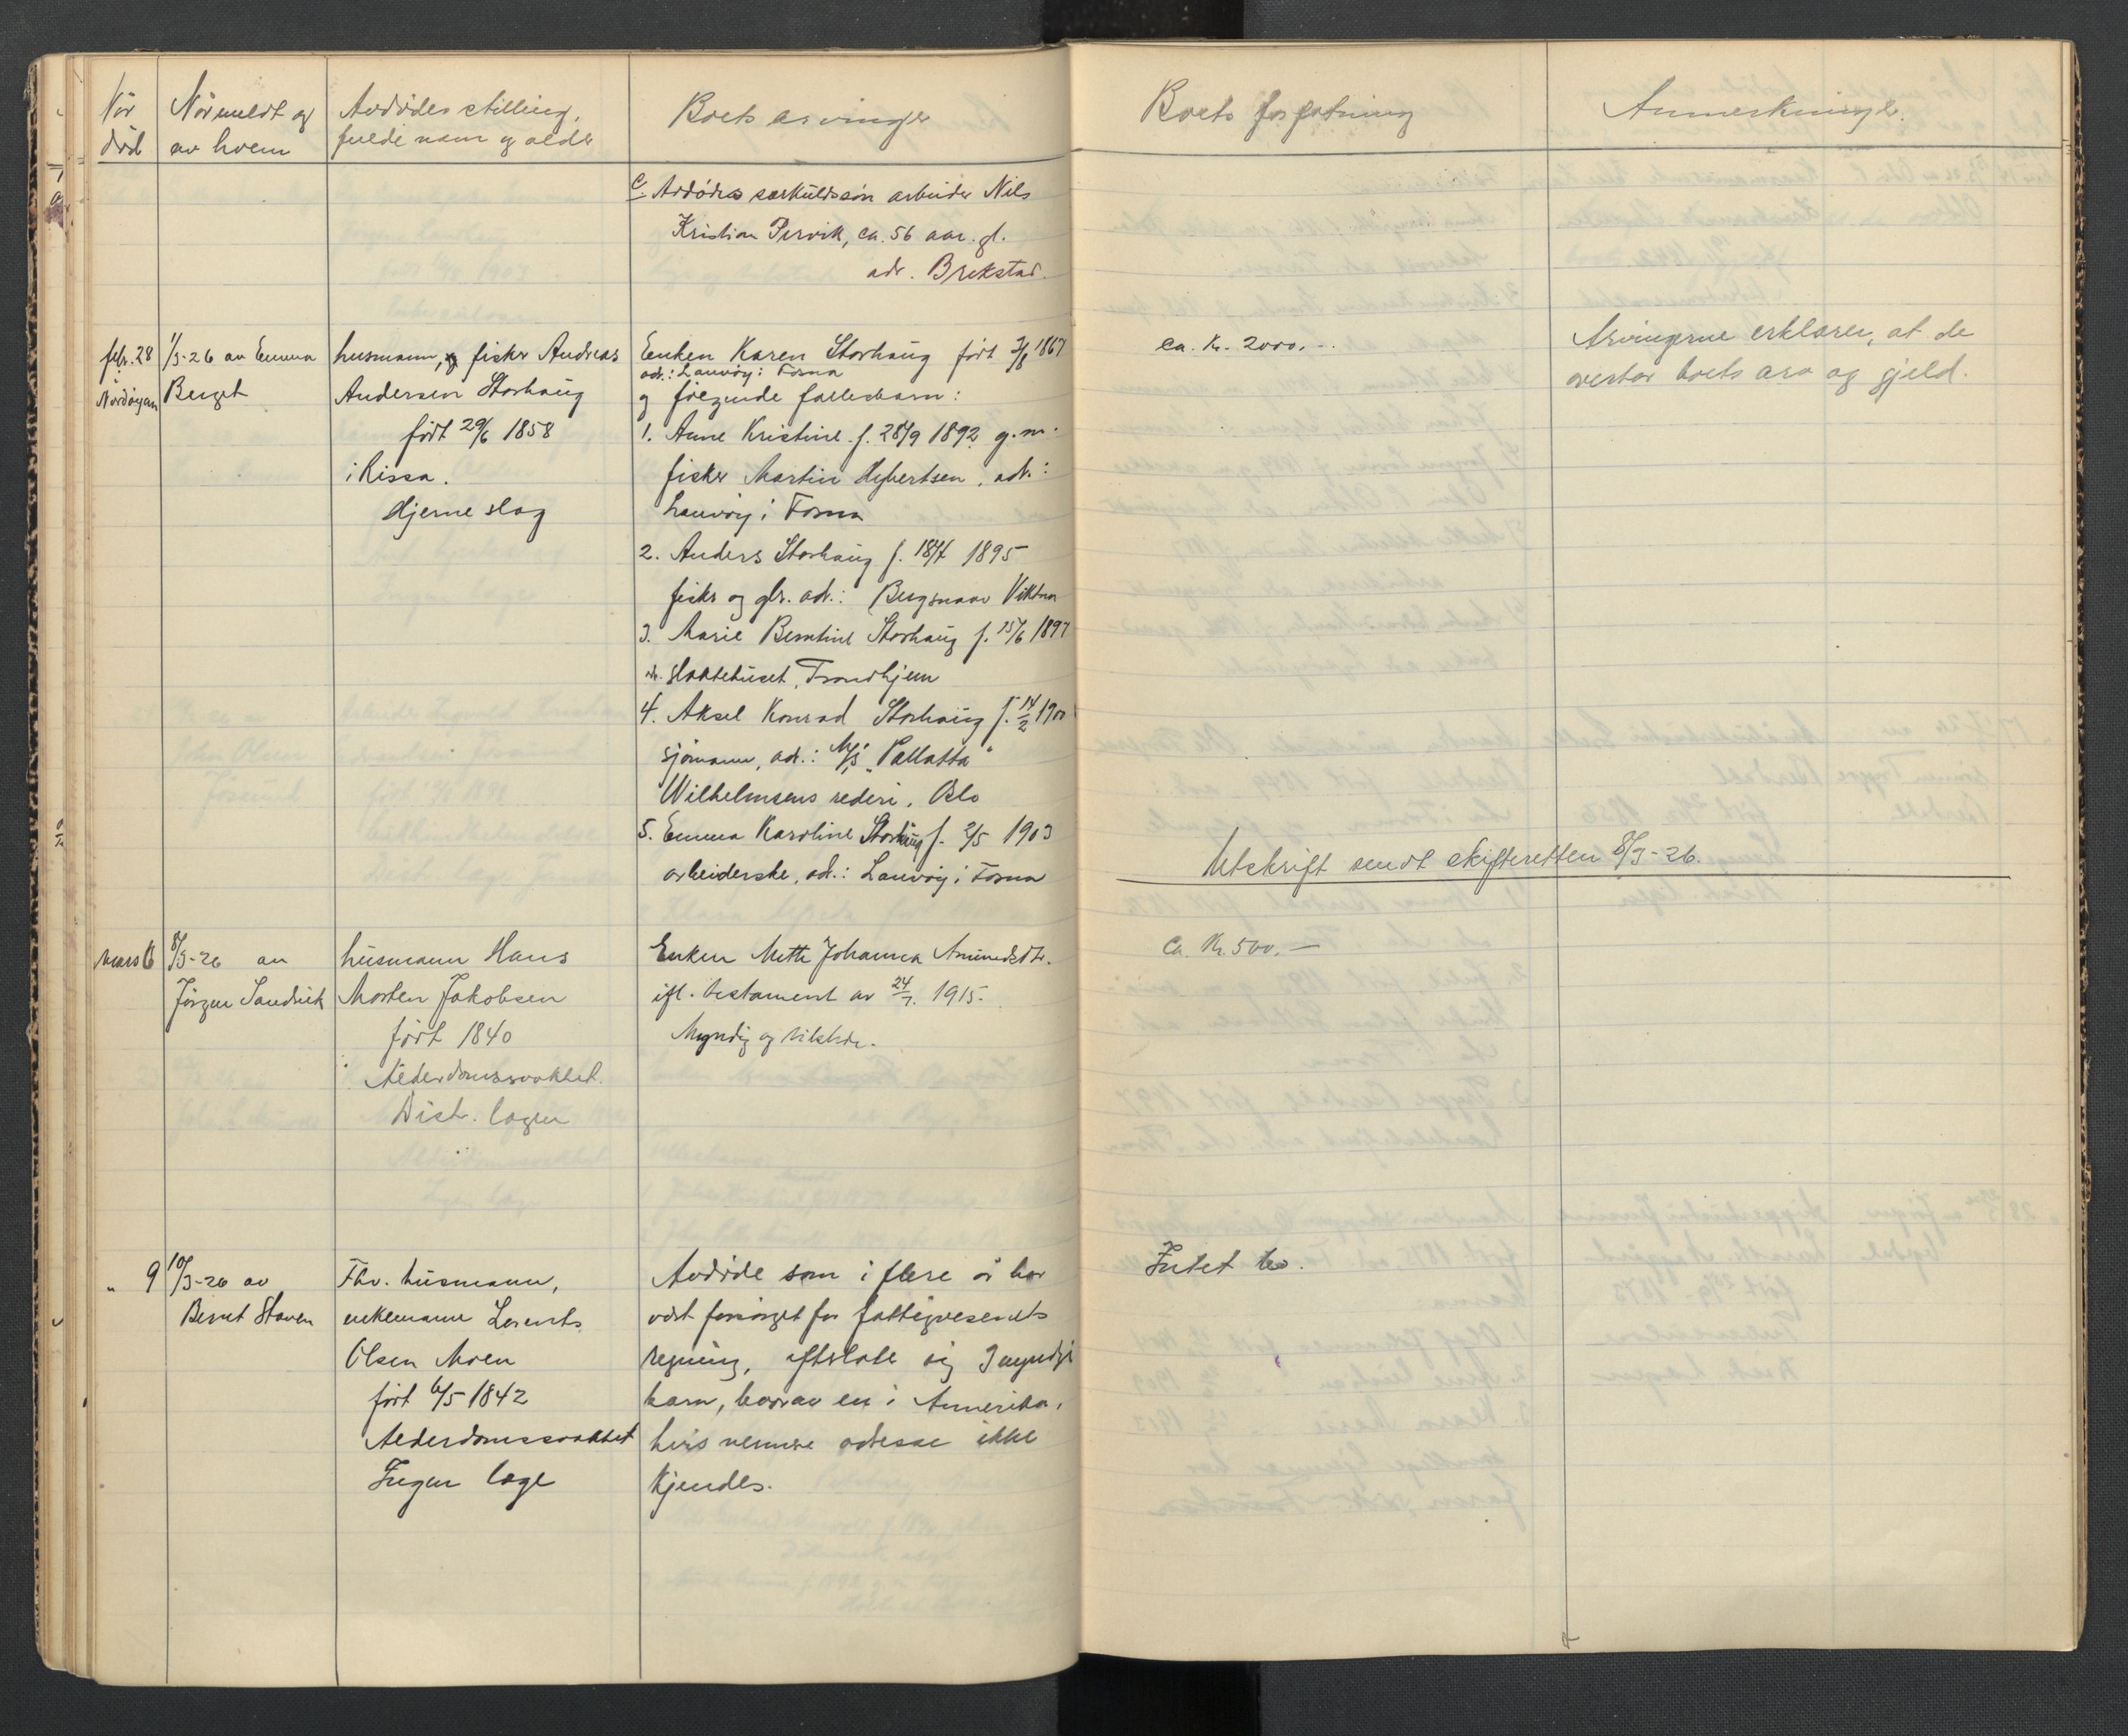 Når død
Når meldt og av hvem
Avdødes stilling, fulde navn og alder
Boets arvinger
Boets forfatning
Anmerkninger.
c. Avdødes særkuldssøn arbeider Nils
Kristian Pervik, ca. 56 aar. gl.
adr. Brekstad.
febr. 28
Nordøyan
1/3-26 av Emma
Berget
husmann, og fisker Andreas
Andersen Storhaug
født 29/6 1858
i Rissa.
Hjerneslag
Enken Karen Storhaug født 3/8 1867
adr.: Lauvøy i Fosna
og følgende fællesbarn:
1. Anne Kristine f. 28/9 1892 g.m.
fisker Martin Hybertsen, adr.:
Lauvøy i Fosna
2. Anders Storhaug f. 18/7 1895
fisker og gbr. adr.: Bugsnaar Viktna
3. Marie Berntine Storhaug f. 15/6 1897
adr. Slaktehuset, Trondhjem
4. Aksel Konrad Storhaug f. 14/2 1900
sjømann, adr.: M/S "Tallatta"
Wilhelmsens rederi, Oslo
5. Emma Karoline Storhaug f. 2/5 1903
arbeiderske, adr.: Lauvøy i Fosna
ca. Kr. 2000.-
Arvingerne erklærer, at de
overtar boets arv og gjeld.
Utskrift sendt skifteretten 8/3-26.
mars 6
8/3-26 av
Jørgen Sandvik
husmann Hans
Morten Jakobsen
født 1840
Alderdomssvakhet.
Distr. lægen
Enken Mette Johanna Amundsdtr.
ifl. testament av 24/7. 1915.
Myndig og tilstede.
Ca. Kr. 500.-
" 9
10/3-26 av
Bernt Staven
Fhv. husmann,
enkemann Lorents
Olsen Moen
født 6/5 1842
Alderdomssvakhet
Ingen læge
Avdøde som i flere år har
vært forsørget for fattigvesenets
regning, efterlot sig 3 myndige
barn, hvorav en i Amerika,
hvis nermere adresse ikke
kjendes.
Intet bo.